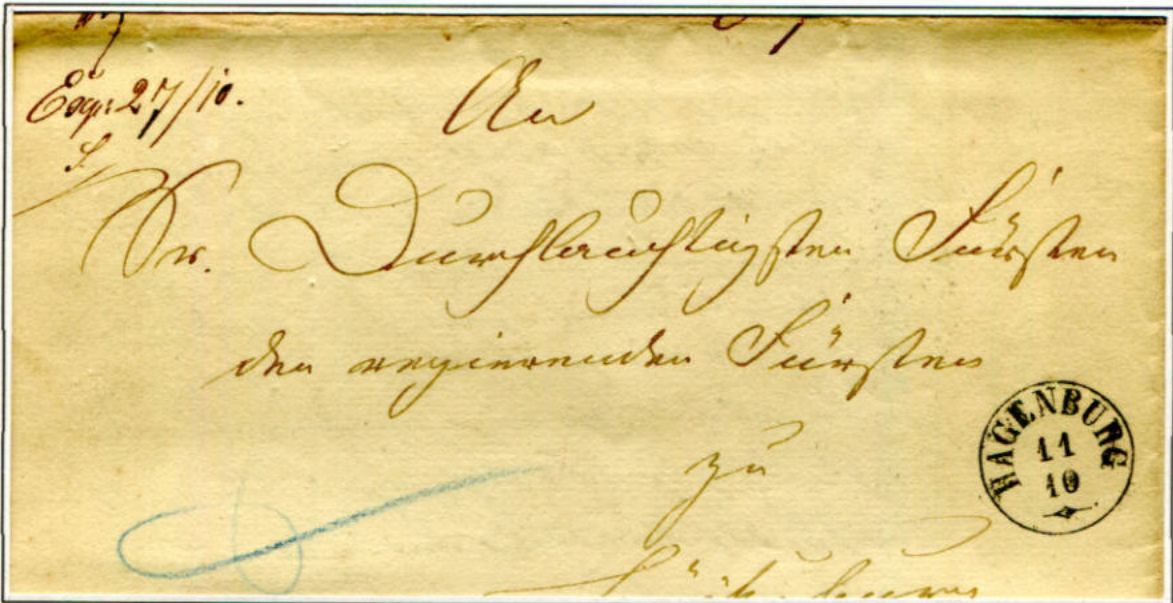 Exp: 27/10.
An
Sr. Durchlauchtigsten Fürsten
den regierenden Fürsten
zu
HAGENBURG
11
10